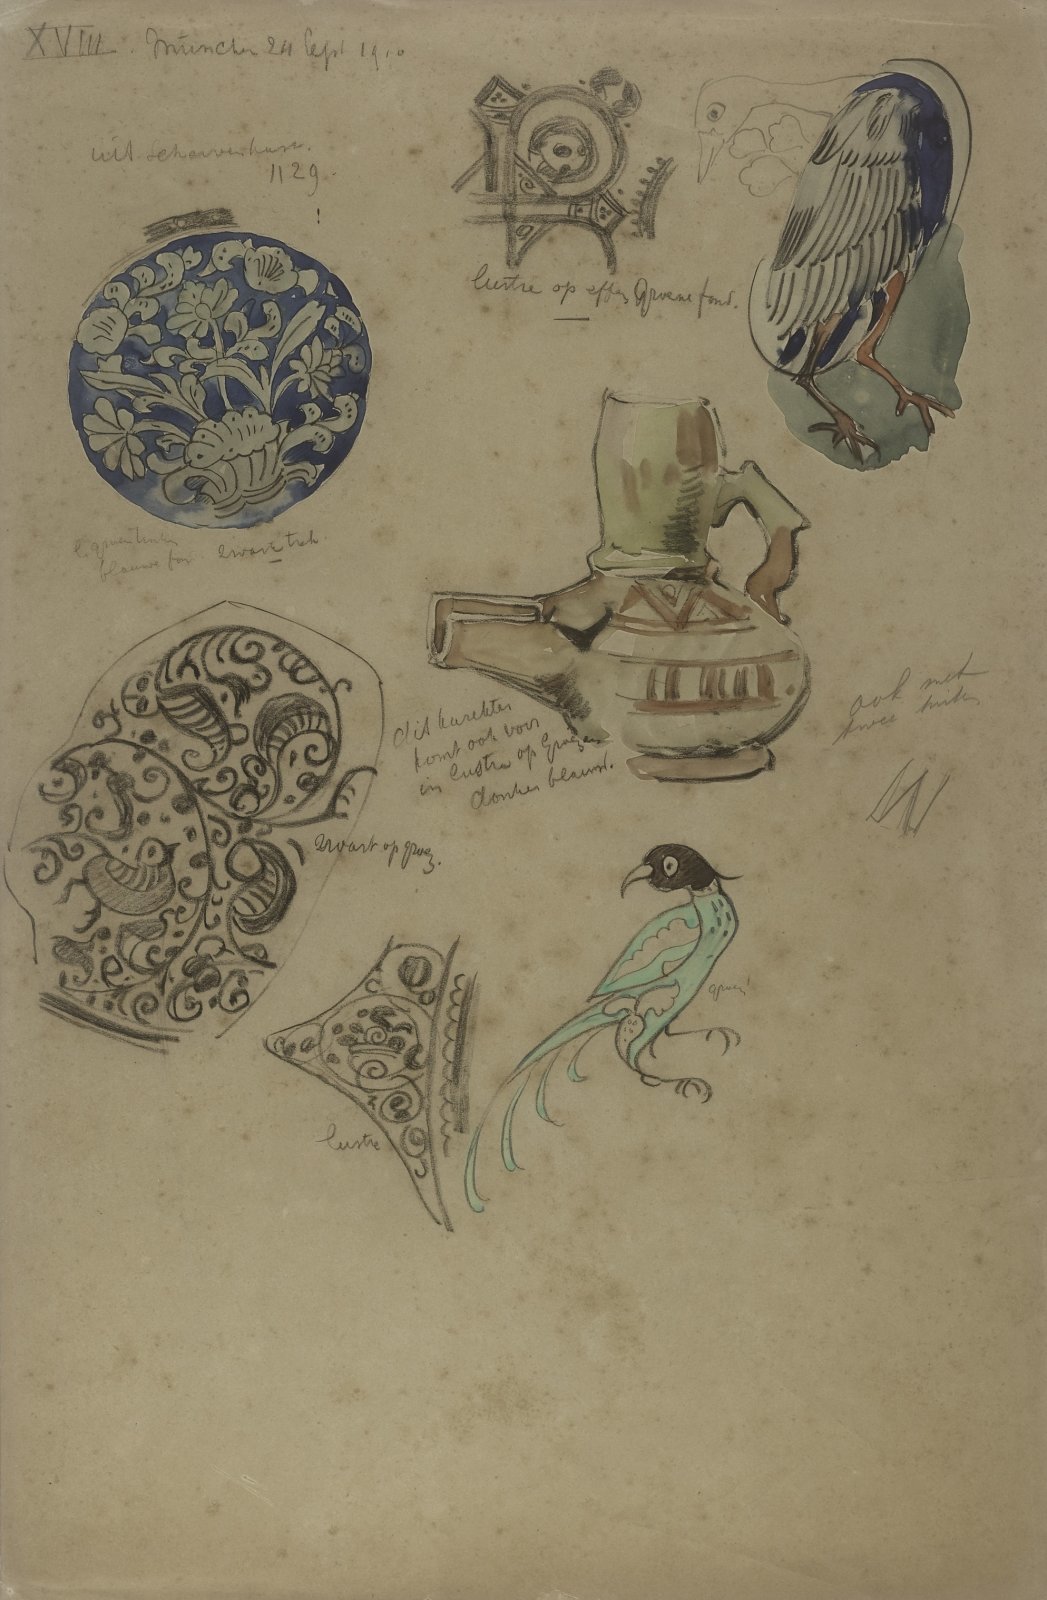 XVIII. München 24 Sept 1910
uit
1129.
lustre op effen groene fond.
blauwe fon zwarte trek
dit karakter
komt ook voor
in lustre op groez en
donker blauw.
ook met
twee tuiten
zwart op groez.
groen
lustre